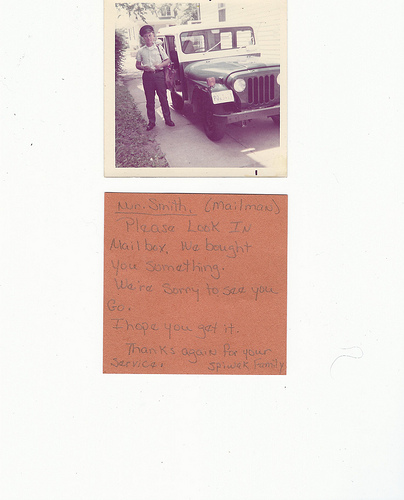 Mr. Smith, (Mailman)
Please Look In
Mailbox. We bought
you something.
We're sorry to see you
Go.
I hope you get it.
Thanks again for your
Services
Spiwak Family